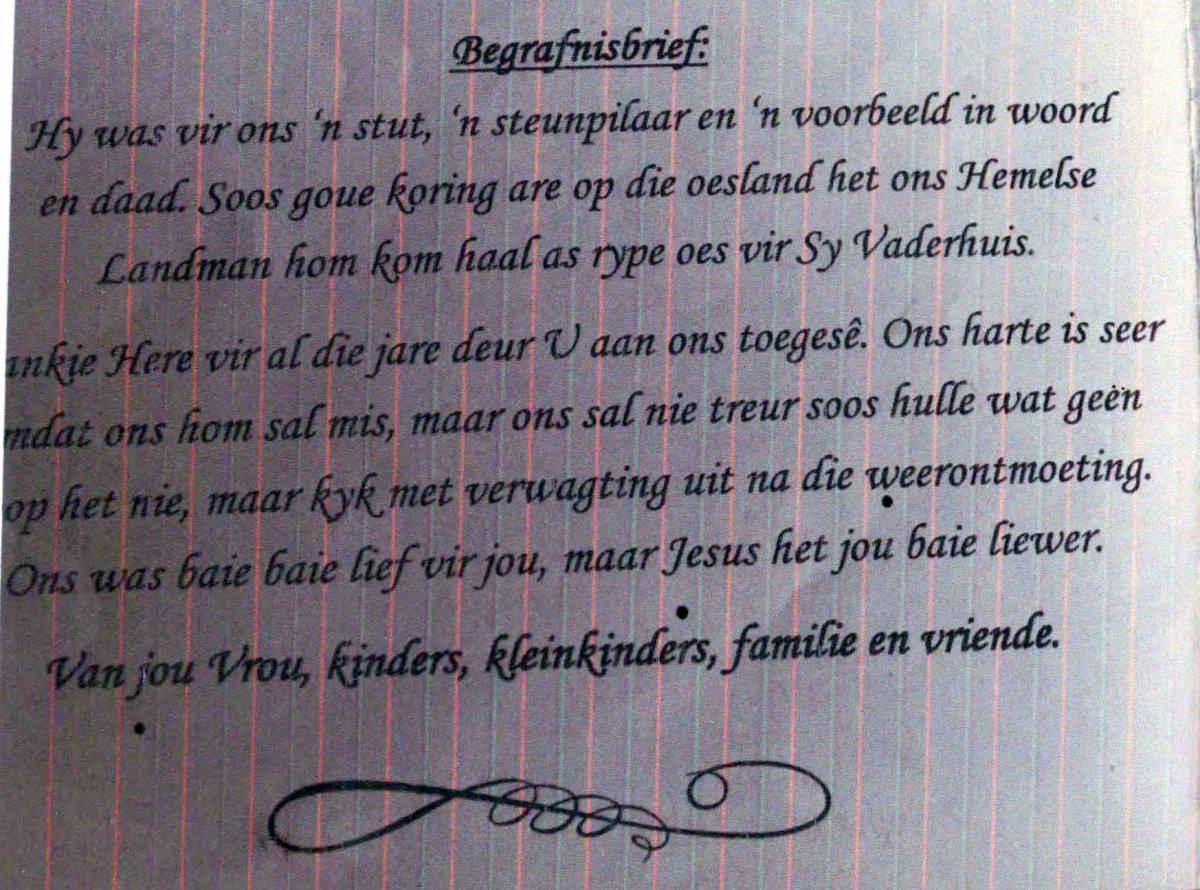 Begrafnisbrief:
Hy was vir ons ‘n stut, ‘n steunpilaar en ‘n voorbeeld in woord
en daad. Soos goue koring are op die oesland het ons Hemelse
Landman hom kom haal as rype oes vir Sy Vaderhuis.
ankie Here vir al die jare deur U aan ons toegesê. Ons harte is seer
mdat ons hom sal mis, maar ons sal nie treur soos hulle wat geën
op het nie, maar kyk met verwagting uit na die weerontmoeting.
Ons was baie baie lief vir jou, maar Jesus het jou baie liewer.
Van jou Vrou, kinders, kleinkinders, familie en vriende.